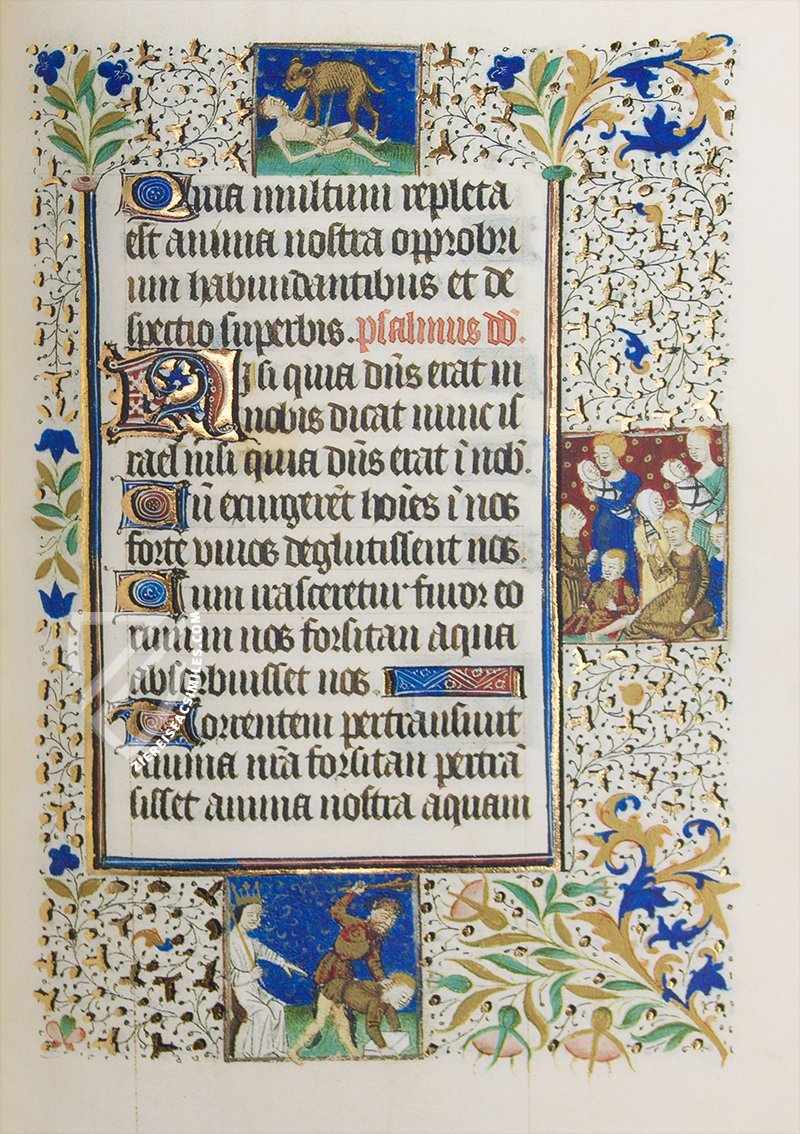 Quia multum repleta
est anima nostra opprobri
um habundantibus et de
spectio superbis. psalmus dd̄.
Nisi quia dn̄s erat in
nobis dicat nunc is
rael nisi q̄uia dn̄s erat ī nob̄.
Cū exurgerēt hoīes ī nos
forte vivos deglutissent nos.
Cum irasceretur furor eo
rum in nos forsitan aqua
absorbuisset nos.
Torrentem pertransivit
anima nr̄a forsitan pertrā
sisset anima nostra aquam
ZIEREISFACSIMILES.COM